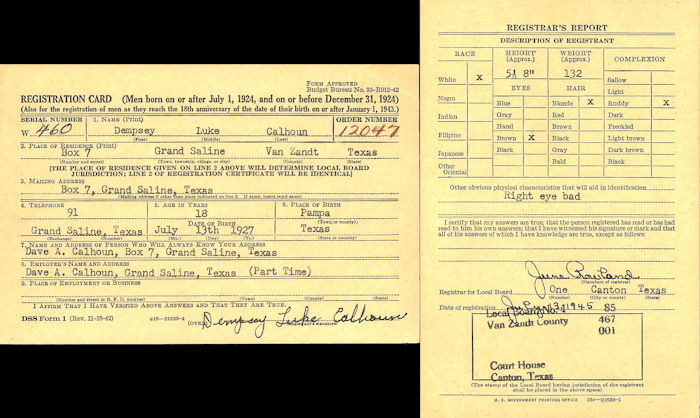 FORM APPROVED
Budget Bureau No. 33-R012-42
REGISTRATION CARD (Men born on or after July 1, 1924, and on or before December 31, 1924)
(Also for the registration of men as they reach the 18th anniversary of the date of their birth on or after January 1, 1943.)
SERIAL NUMBER 1. NAME (Print) ORDER NUMBER
W 460 Dempsey Luke Calhoun 12047
(First) (Middle) (Last)
2. PLACE OF RESIDENCE (Print)
Box 7 Grand Saline Van Zandt Texas
(Number and street) (Town, township, village, or city) (County) (State)
[THE PLACE OF RESIDENCE GIVEN ON LINE 2 ABOVE WILL DETERMINE LOCAL BOARD
JURISDICTION; LINE 2 OF REGISTRATION CERTIFICATE WILL BE IDENTICAL]
3. MAILING ADDRESS
Box 7, Grand Saline, Texas
(Mailing address if other than place indicated on line 2. If same, insert word same)
4. TELEPHONE 5. AGE IN YEARS 6. PLACE OF BIRTH
91 18 Pampa
DATE OF BIRTH (Town or county)
Grand Saline, Texas July 13th 1927 Texas
(Exchange) (Number) (Mo.) (Day) (Yr.) (State or country)
7. NAME AND ADDRESS OF PERSON WHO WILL ALWAYS KNOW YOUR ADDRESS
Dave A. Calhoun, Box 7, Grand Saline, Texas
8. EMPLOYER'S NAME AND ADDRESS
Dave A. Calhoun, Grand Saline, Texas (Part Time)
9. PLACE OF EMPLOYMENT OR BUSINESS
(Number and street or R. F. D. number) (Town) (County) (State)
I AFFIRM THAT I HAVE VERIFIED ABOVE ANSWERS AND THAT THEY ARE TRUE.
DSS Form 1 (Rev. 11-16-42) c16-21630-4 (OVER) Dempsey Luke Calhoun
REGISTRAR'S REPORT
DESCRIPTION OF REGISTRANT
RACE HEIGHT (Approx.) WEIGHT (Approx.) COMPLEXION
White X 5' 8" 132 Sallow
EYES HAIR Light
Negro Blue Blonde X Ruddy X
Indian Gray Red Dark
Hazel Brown Freckled
Filipino Brown X Black Light brown
Japanese Black Gray Dark brown
Other Oriental Bald Black
Other obvious physical characteristics that will aid in identification
Right eye bad
I certify that my answers are true; that the person registered has read or has had
read to him his own answers; that I have witnessed his signature or mark and that
all of his answers of which I have knowledge are true, except as follows:
June Rowland
(Signature of registrar)
Registrar for Local Board One Canton Texas
(Number) (City or county) (State)
Date of registration July 13 1945
Local Board No. 1 85
Van Zandt County 467
001
Court House
Canton, Texas
(The stamp of the Local Board having jurisdiction of the registrant
shall be placed in the above space)
U. S. GOVERNMENT PRINTING OFFICE 16—21630-1